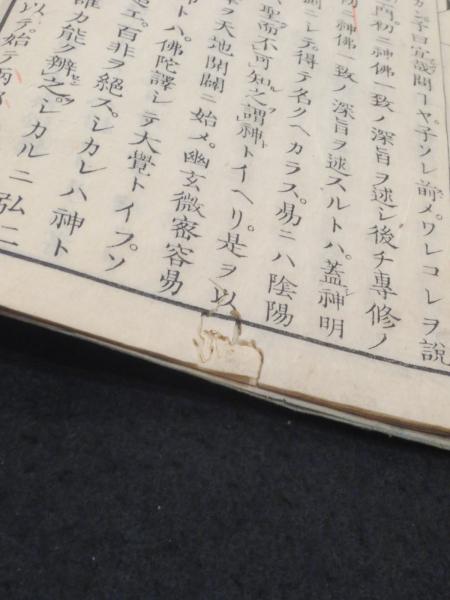 宜哉問ーヤ子ソレ諦メワレコレヲ説
初ニ神佛一致ノ深旨ヲ述シ後チ専修ノ
初ニ神佛一致ノ深旨ヲ述スルトハ蓋神明
ニシテ得テ名クヘカラス易ニハ陰陽
聖而不可知之謂神トイヘリ是ヲ以
ヲ天地開闢ニ始メ幽玄微密容易
トハ佛陀譯シテ大覺トイフソ
百非ヲ絶スシカレハ神ト
誰カ能ク辨之シカルニ弘ニ
以テ始テ